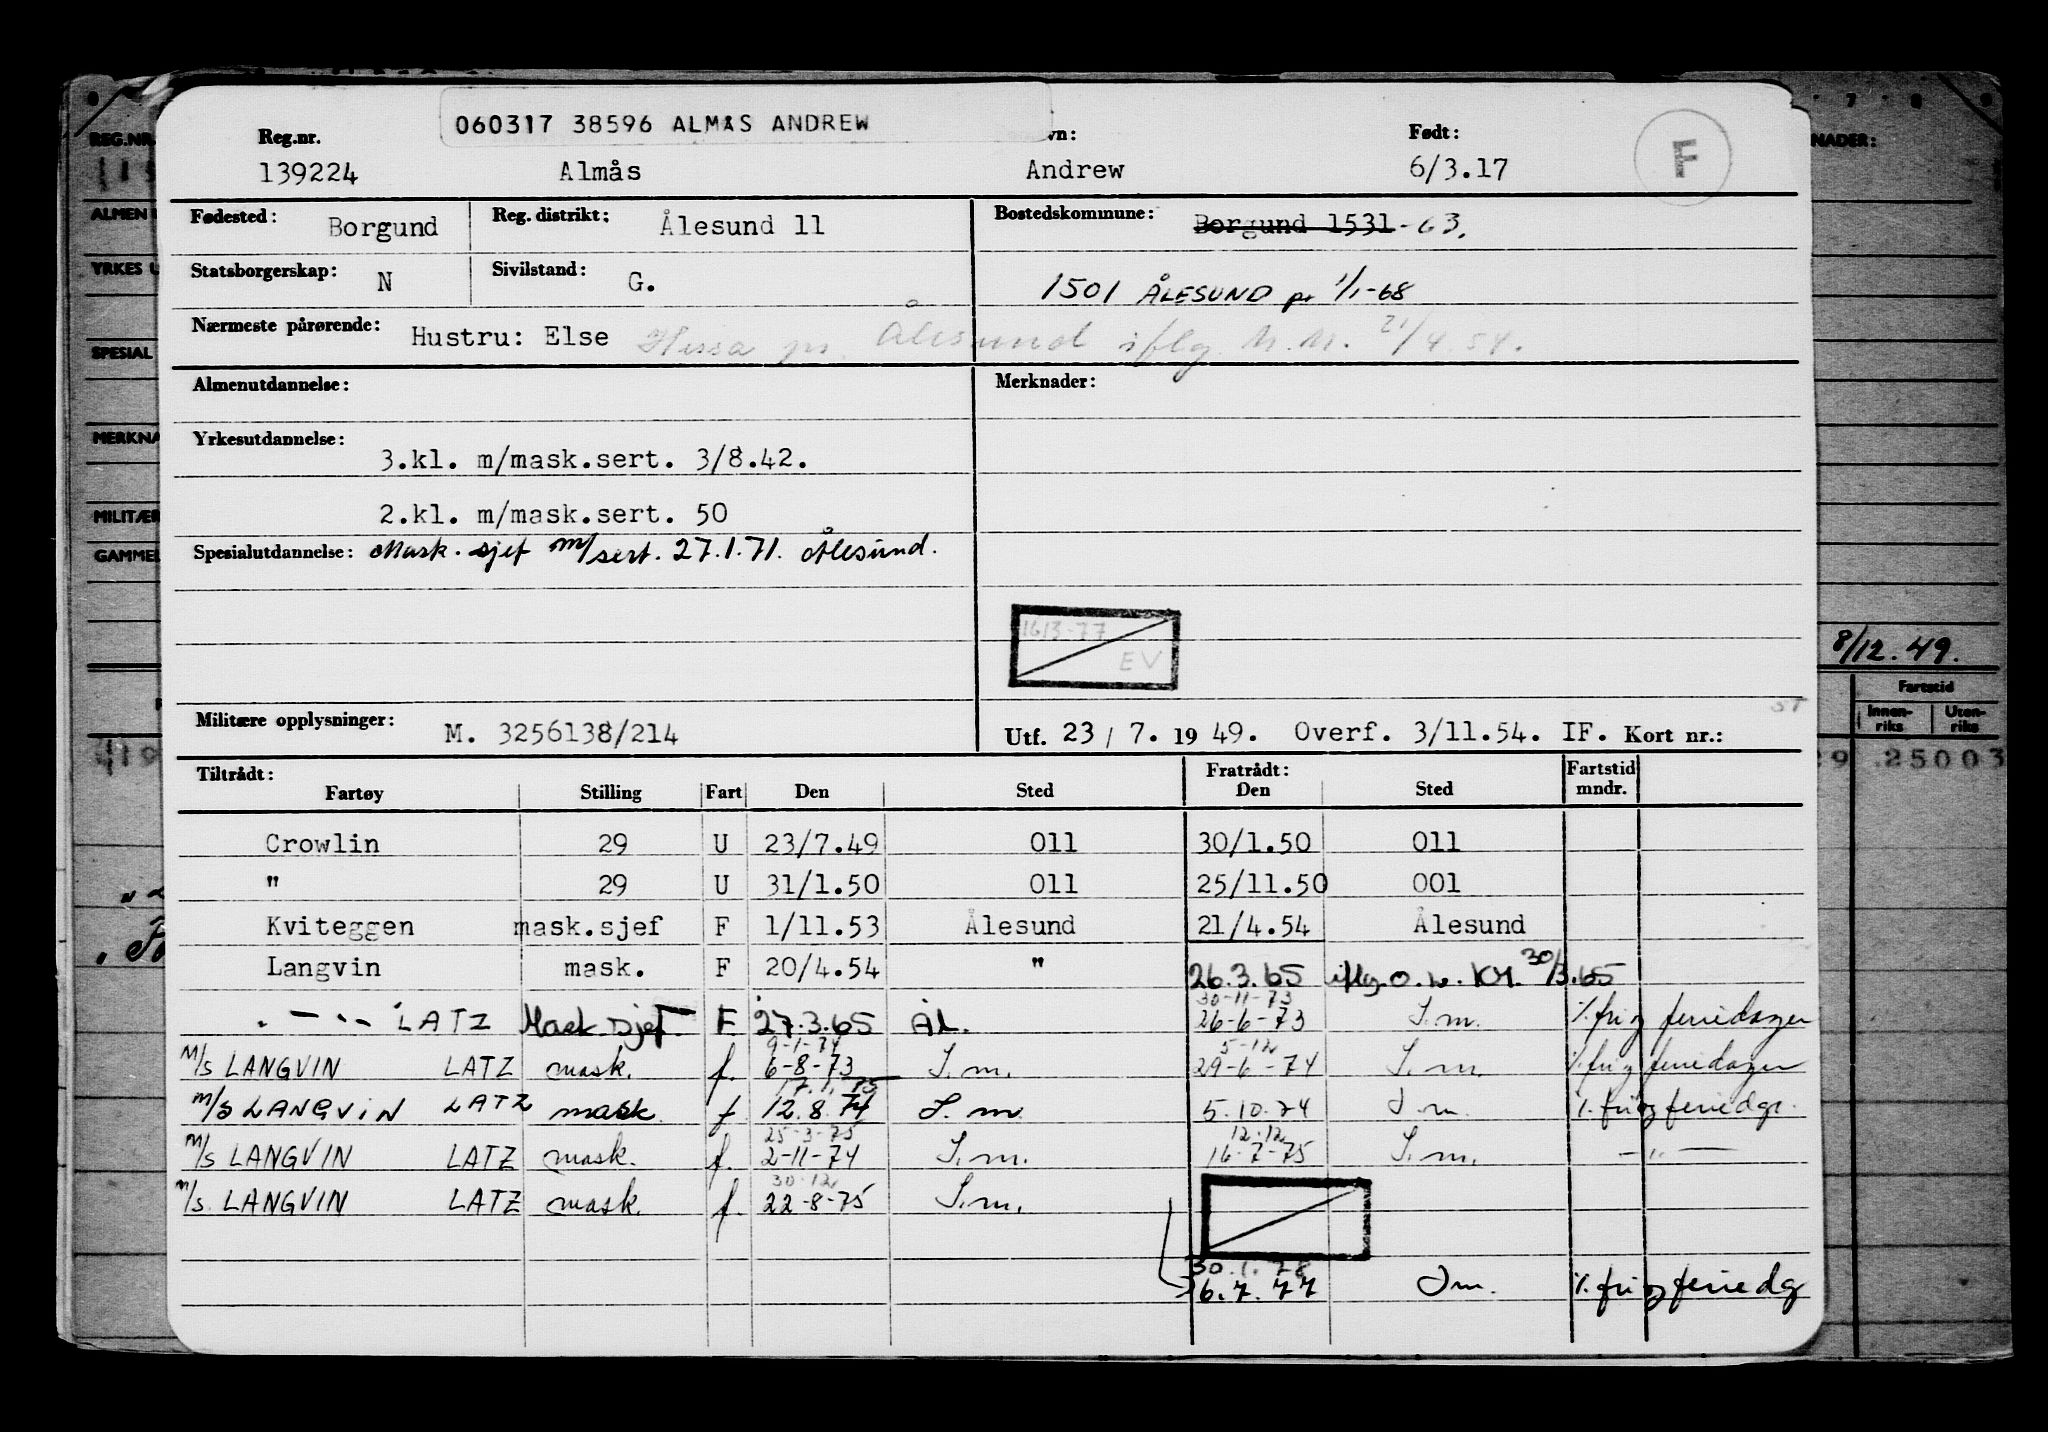 060317 38596 ALMÅS ANDREW
Reg.nr. vn: Født: F
139224 Almås Andrew 6/3.17
Fødested: Borgund Reg. distrikt: Ålesund 11 Bostedskommune: Borgund 1531-63.
Statsborgerskap: N Sivilstand: G. 1501 ÅLESUND pr 1/1-68
Nærmeste pårørende: Hustru: Else Hessa pr. Ålesund iflg M.M. 21/4.54.
Almenutdannelse: Merknader:
Yrkesutdannelse: 3.kl. m/mask.sert. 3/8.42.
2.kl. m/mask.sert. 50
Spesialutdannelse: Mask. sjef m/sert. 27.1.71. Ålesund.
1613-77
EV
Militære opplysninger: M. 3256138/214 Utf. 23 / 7. 19 49. Overf. 3/11.54. IF. Kort nr.:
Tiltrådt: Fratrådt: Fartstid
Fartøy Stilling Fart Den Sted Den Sted mndr.
Crowlin 29 U 23/7.49 011 30/1.50 011
" 29 U 31/1.50 011 25/11.50 001
Kviteggen mask.sjef F 1/11.53 Ålesund 21/4.54 Ålesund
Langvin mask. F 20/4.54 " 26.3.65 iflg. 30/3.65
30-11-73
- " - LATZ Mask sjef F 27.3.65 ÅL. 26-6-73 S.m. %.fri og feriedager
9-1-74 5-12
M/S LANGVIN LATZ mask. f. 6-8-73 S.m. 29-6-74 S.m. %.fri og feriedager
17.1.75
M/S LANGVIN LATZ mask f 12.8.74 S.m. 5.10.74 S.m. %.fri og feriedgr.
25-3-75 12-12
M/S LANGVIN LATZ mask. f. 2-11-74 S.m. 16-7-75 S.m. - " -
30-12
M/S. LANGVIN LATZ mask. f. 22-8-75 S.m.
30.1.78
6.7.77 S.m. %.fri og feriedg
REG.NR.
ALMEN
YRKES U
SPESIAL
MERKNA
MILITÆR
GAMMEL
7 8 9
NADER:
8/12.49.
Fartstid
Innen-riks Uten-riks
29 .25003